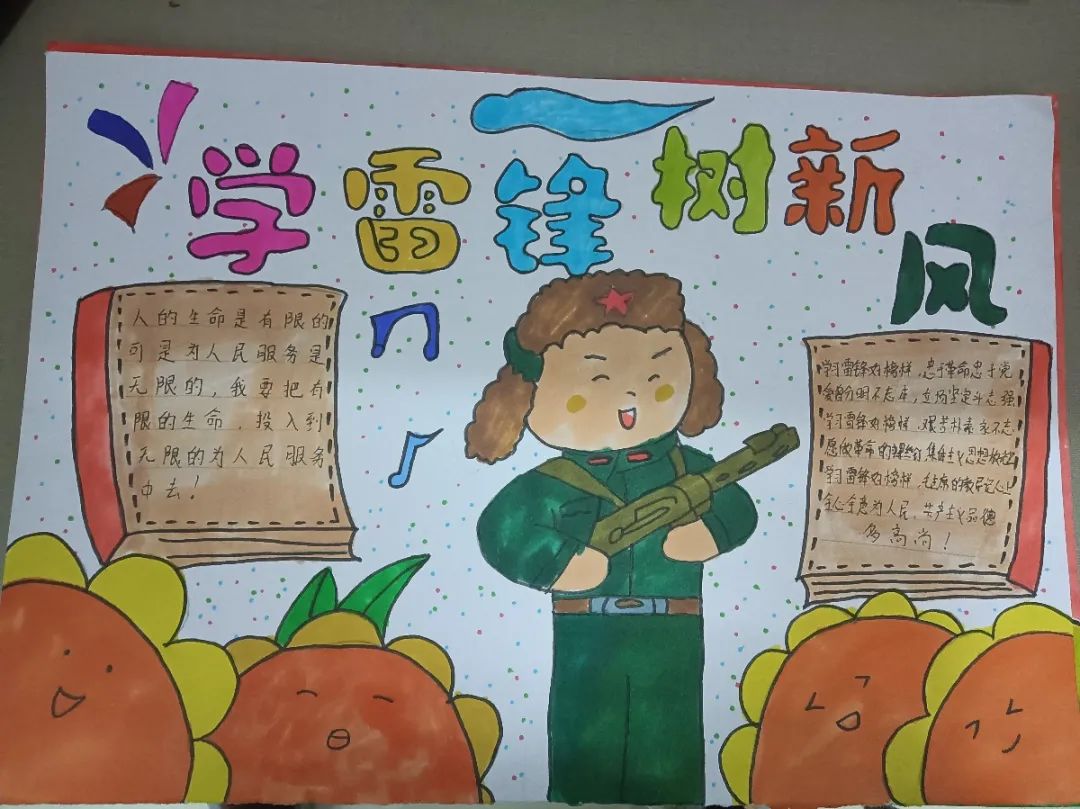 学雷锋树新风
人的生命是有限的
可是为人民服务是
无限的，我要把有
限的生命，投入到
无限的为人民服务
中去！
学习雷锋好榜样，忠于革命忠于党
爱憎分明不忘本，立场坚定斗志强
学习雷锋好榜样，艰苦朴素永不忘
愿做革命的螺丝钉，集体主义思想
学习雷锋好榜样，毛主席的教导记心上
全心全意为人民，共产主义品德
多高尚！